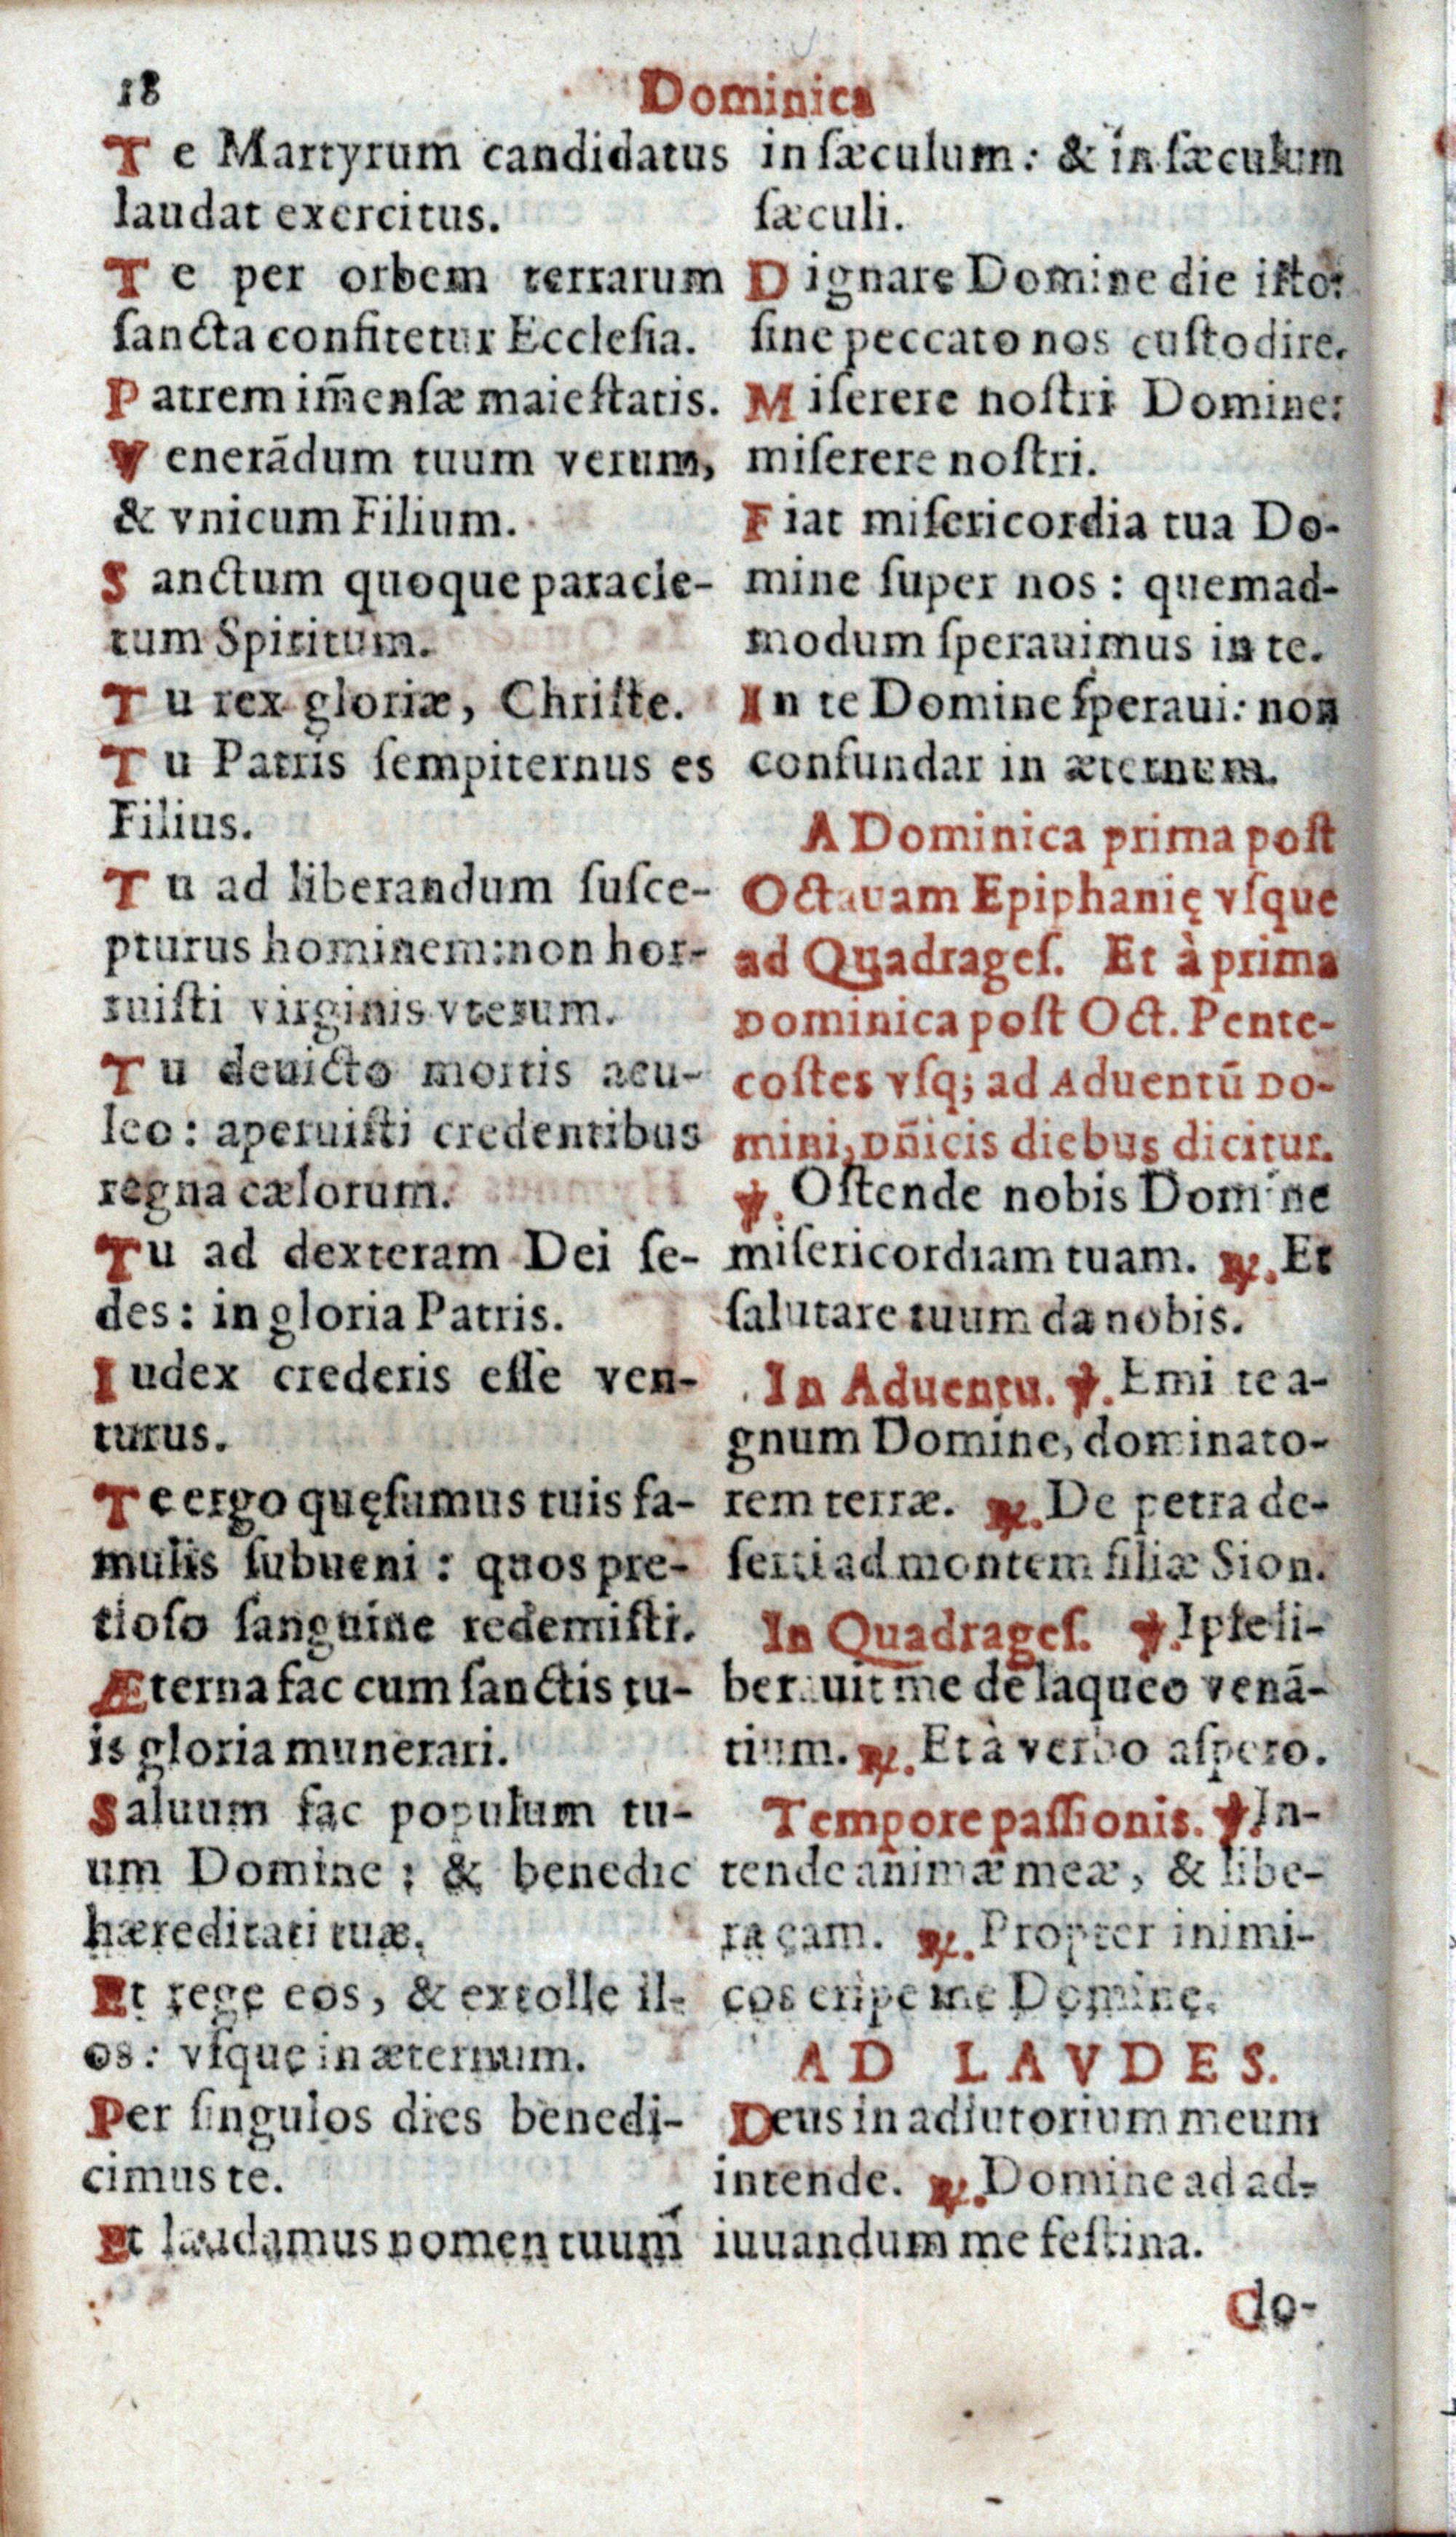 18
Dominica
Te Martyrum candidatus
laudat exercitus.
Te per orbem terrarum
ſancta confitetur Eccleſia.
Patrem im̃enſæ maieſtatis.
Venerãdum tuum verum,
& vnicum Filium.
Sanctum quoque paracle-
tum Spiritum.
Tu rex gloriæ, Chriſte.
Tu Patris ſempiternus es
Filius.
Tu ad liberandum ſuſce-
pturus hominem: non hor-
ruiſti virginis vterum.
Tu deuicto mortis acu-
leo: aperuiſti credentibus
regna cælorum.
Tu ad dexteram Dei ſe-
des: in gloria Patris.
Iudex crederis eſſe ven-
turus.
Te ergo quęſumus tuis fa-
mulis ſubueni: quos pre-
tioſo ſanguine redemiſti.
Æterna fac cum ſanctis tu-
is gloria munerari.
Saluum fac populum tu-
um Domine: & benedic
hæreditati tuæ.
Et rege eos, & extolle il-
os: vſque in æternum.
Per ſingulos dies benedi-
cimus te.
Et laudamus nomen tuum
in ſæculum: & in ſæculum
ſæculi.
Dignare Domine die iſto:
ſine peccato nos cuſtodire.
Miſerere noſtri Domine:
miſerere noſtri.
Fiat miſericordia tua Do-
mine ſuper nos: quemad-
modum ſperauimus in te.
In te Domine ſperaui: non
confundar in æternum.
A Dominica prima poſt
Octauam Epiphanię vſque
ad Quadrageſ. Et à prima
Dominica poſt Oct. Pente-
coſtes vſq; ad Aduentũ Do-
mini, Dñicis diebus dicitur.
℣. Oſtende nobis Domine
miſericordiam tuam. ℟. Et
ſalutare tuum da nobis.
In Aduentu. ℣. Emi te a-
gnum Domine, dominato-
rem terræ. ℟. De petra de-
ſerti ad montem filiæ Sion.
In Quadrageſ. ℣. Ipſe li-
berauit me de laqueo venã-
tium. ℟. Et à verbo aſpero.
Tempore paſſionis. ℣. In-
tende animæ meæ, & libe-
ra eam. ℟. Propter inimi-
cos eripe me Domine.
AD LAVDES.
Deus in adiutorium meum
intende. ℟. Domine ad ad-
iuuandum me feſtina.
Glo-